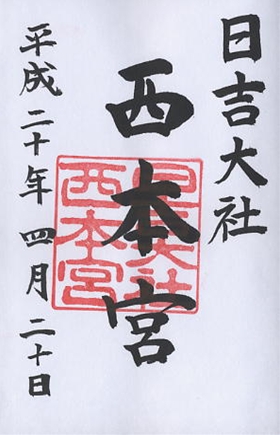 日吉大社
西本宮
平成二十年四月二十日
日吉大社
西本宮